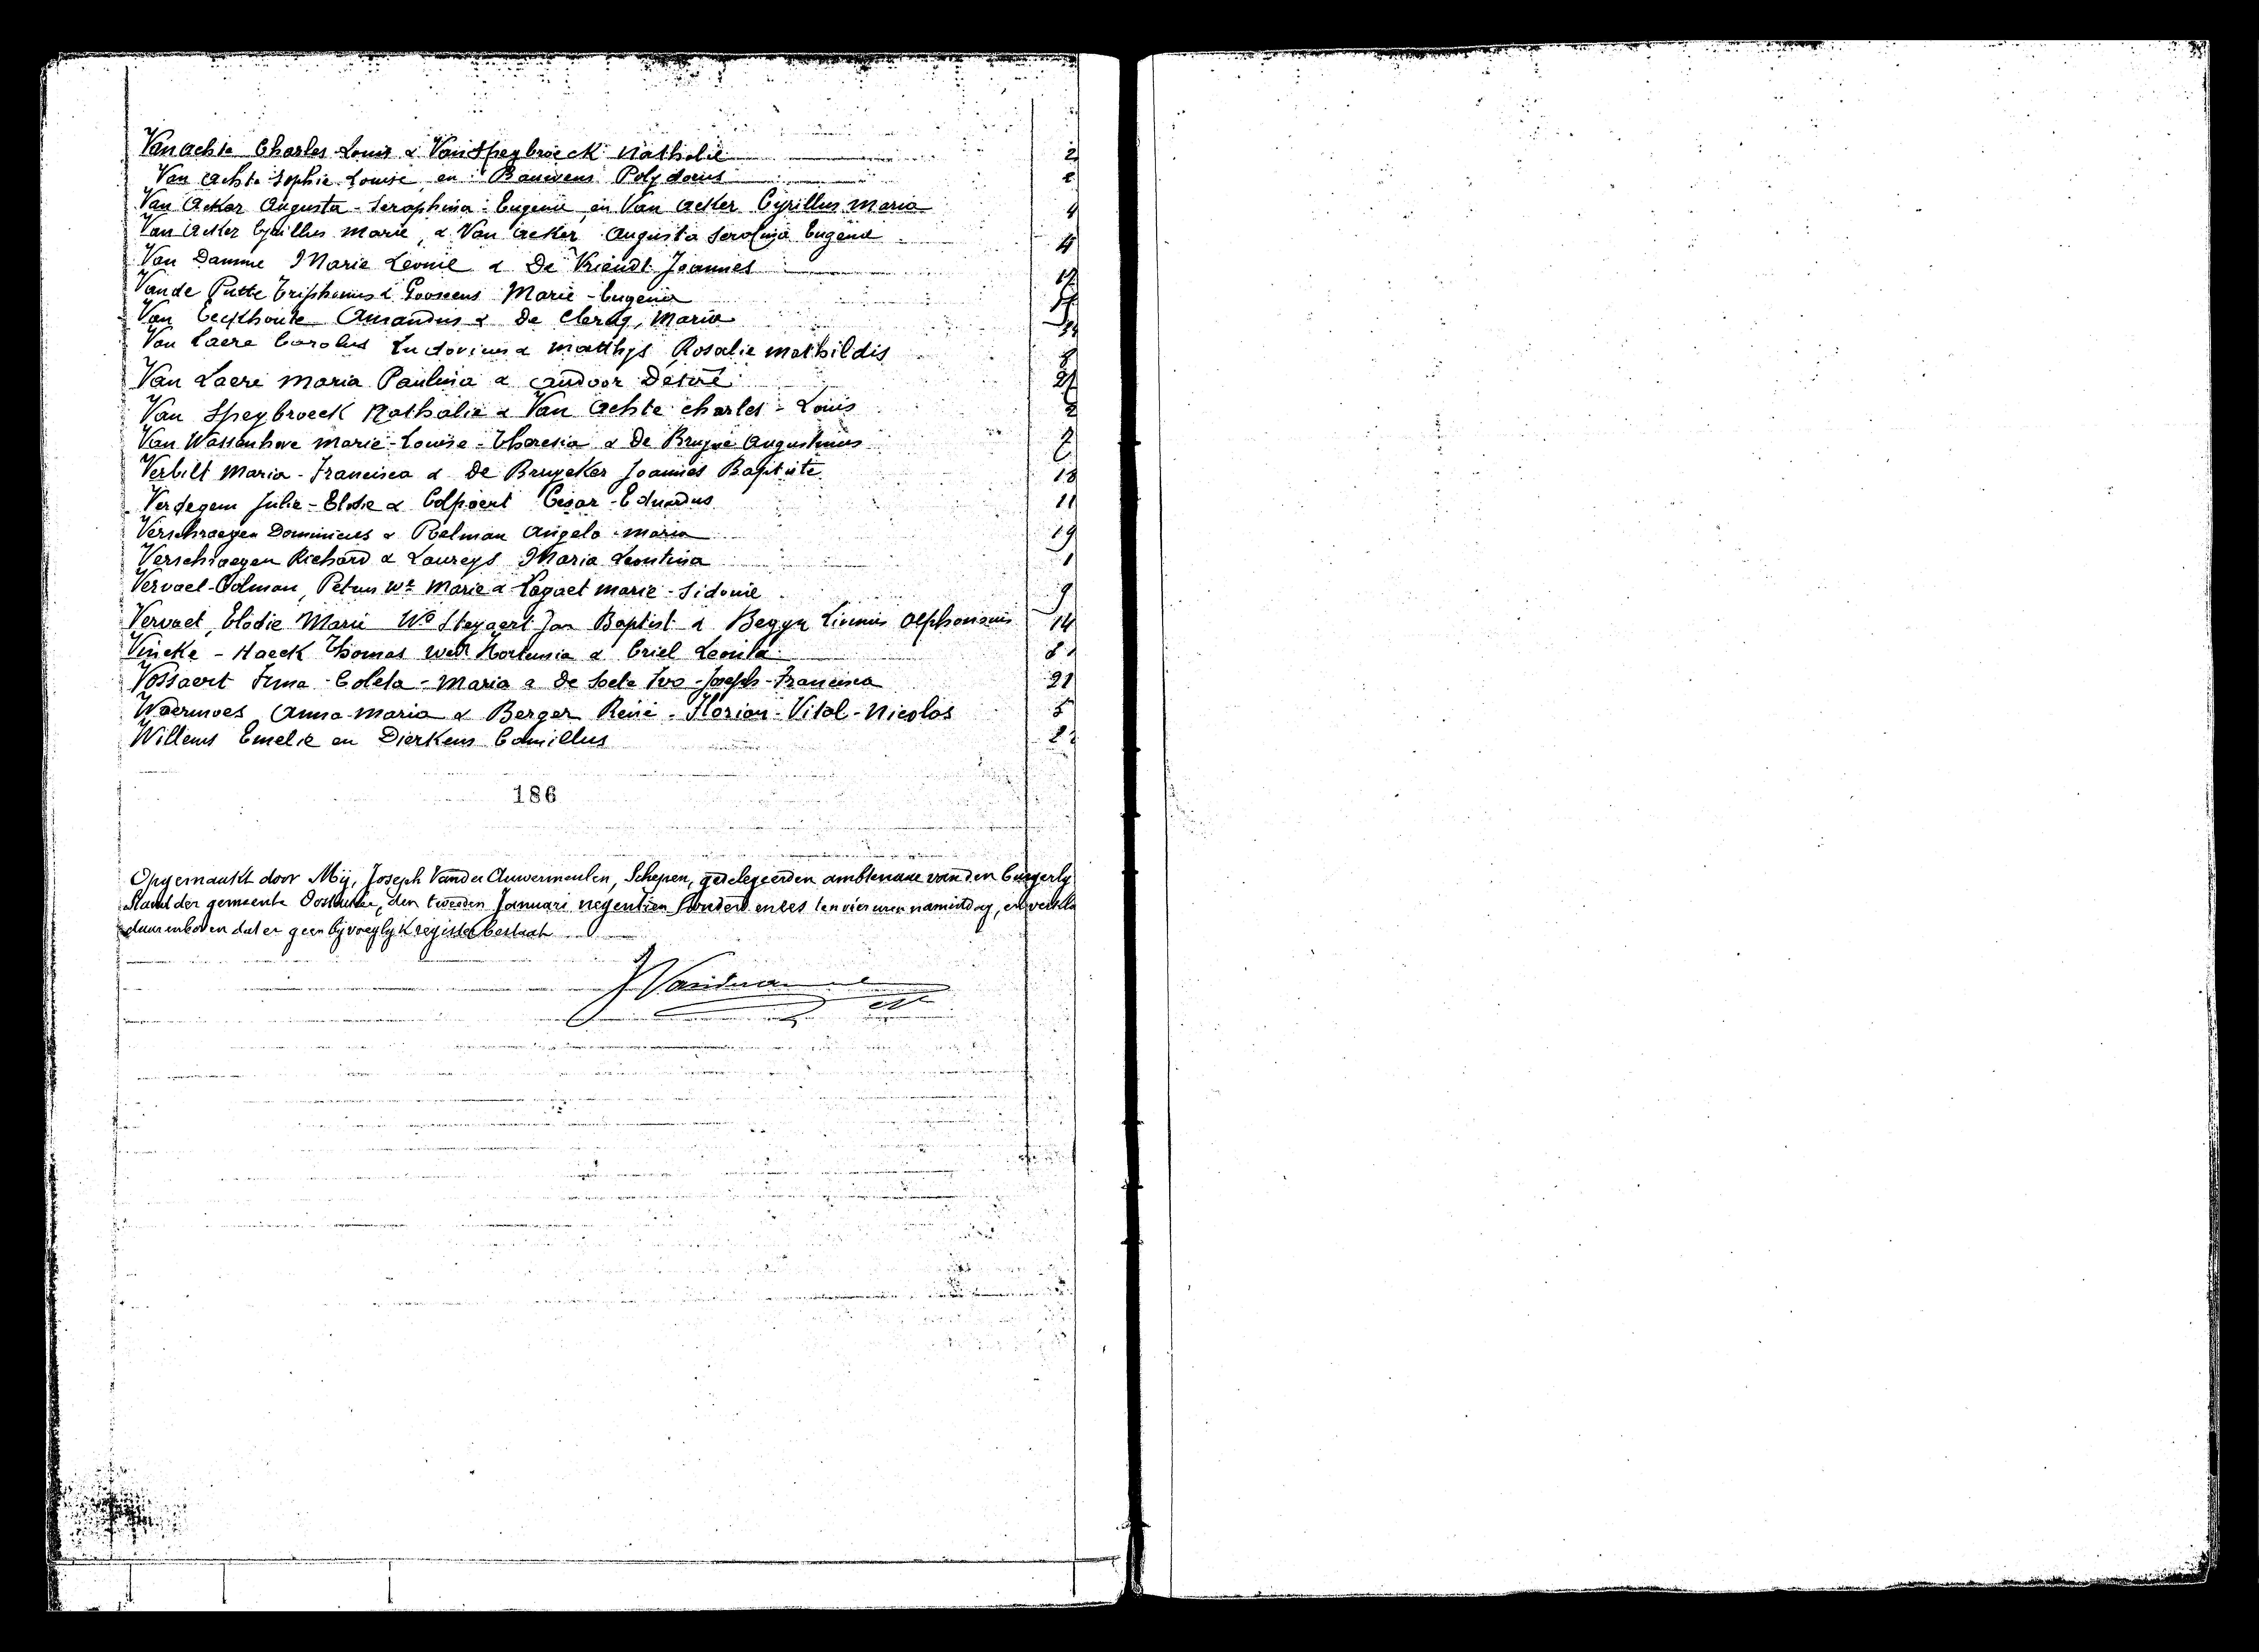 Van achte Charles Louis & Van Speybroeck Nathalie 2
Van Achte Sophie Louise en Bauwens Polydorus 2
Van Acker Augusta - Seraphina - Eugenie en Van Acker Cyrillus Maria 4
Van Acker Cyrillus Marie, & Van Acker Augusta Serafina Eugenie 4
Van Damme Marie Leonie & De Vriendt Joannes
Van de Putte Triphonus & Goossens Marie - Eugenia
Van Eeckhoute Amandus & De Clercq, Maria
Van Laere Carolus Ludovicus & Matthys Rosalie Mathildis 8
Van Laere Maria Paulina & Andoor Desiré 21
Van Speybroeck Nathalie & Van Achte Charles - Louis 2
Van Wassenhove Marie - Louise - Theresia & De Bruyne Augustinus
Verbilt Maria - Francisca & De Bruycker Joannes Baptiste 18
Verdegem Julie - Elodie & Colpaert Cesar - Eduardus 11
Verschraegen Dominicus & Relman Angela - Maria 19
Verschraegen Richard & Laureys Maria Leontina 1
Vervaet - Colman, Petrus wr Marie & Lagaet Marie - Sidonie 9
Vervaet, Elodie Marie We Steyaert Jan Baptist & Beggyn Livinus Alphonsius 14
Vincke - Haeck Thomas wedr Hortensia & Criel Leonia
Vossaert Irma - Coleta - Maria & De Soete Ivo - Joseph - Francisca 21
Waermoes Anna - Maria & Berger René - Florian - Vital - Nicolas 5
Willems Emelie en Dierkens Camillus
186
Opgemaakt door Mij, Joseph Vander Auwermeulen, Schepen, gedelegeerden ambtenaar van den burgerly
Stand der gemeente Oostakker, den tweeden Januari negentien honderd en zes ten vier uren namiddag, en verkla
daarenboven dat er geen bijvoeglyk register bestaat